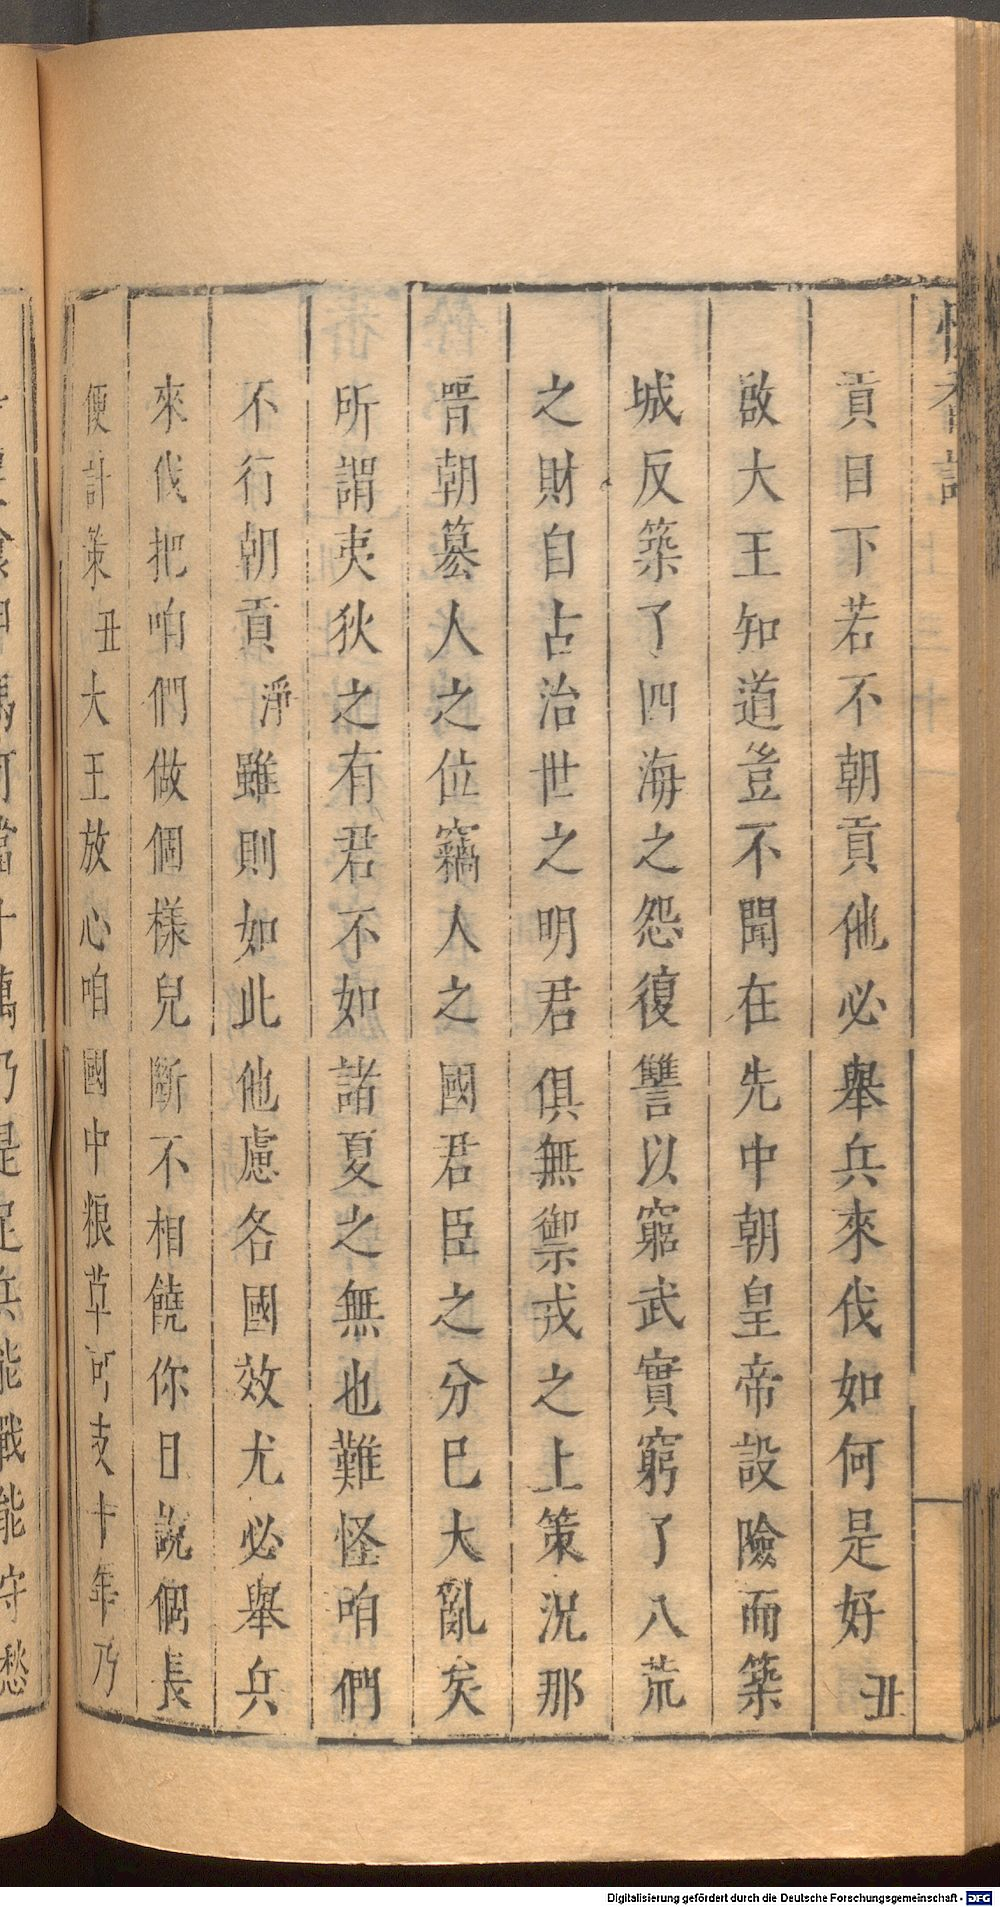 貢目下若不朝貢他必舉兵來伐如何是好丑
啟大王知道豈不聞在先中朝皇帝設險而築
城反築了四海之怨復讐以窮武實窮了八荒
之財自古治世之明君俱無禦戎之上策況那
晋朝篡人之位竊人之國君臣之分已大亂矣
所謂夷狄之有君不如諸夏之無也難怪咱們
不行朝貢淨雖則如此他慮各國效尤必舉兵
來伐把咱們做個樣兒斷不相饒你日說個長
便計策丑大王放心咱國中粮草可支十年乃
能戰能守愁
Digitalisierung gefördert durch die Deutsche Forschungsgemeinschaft - DFG